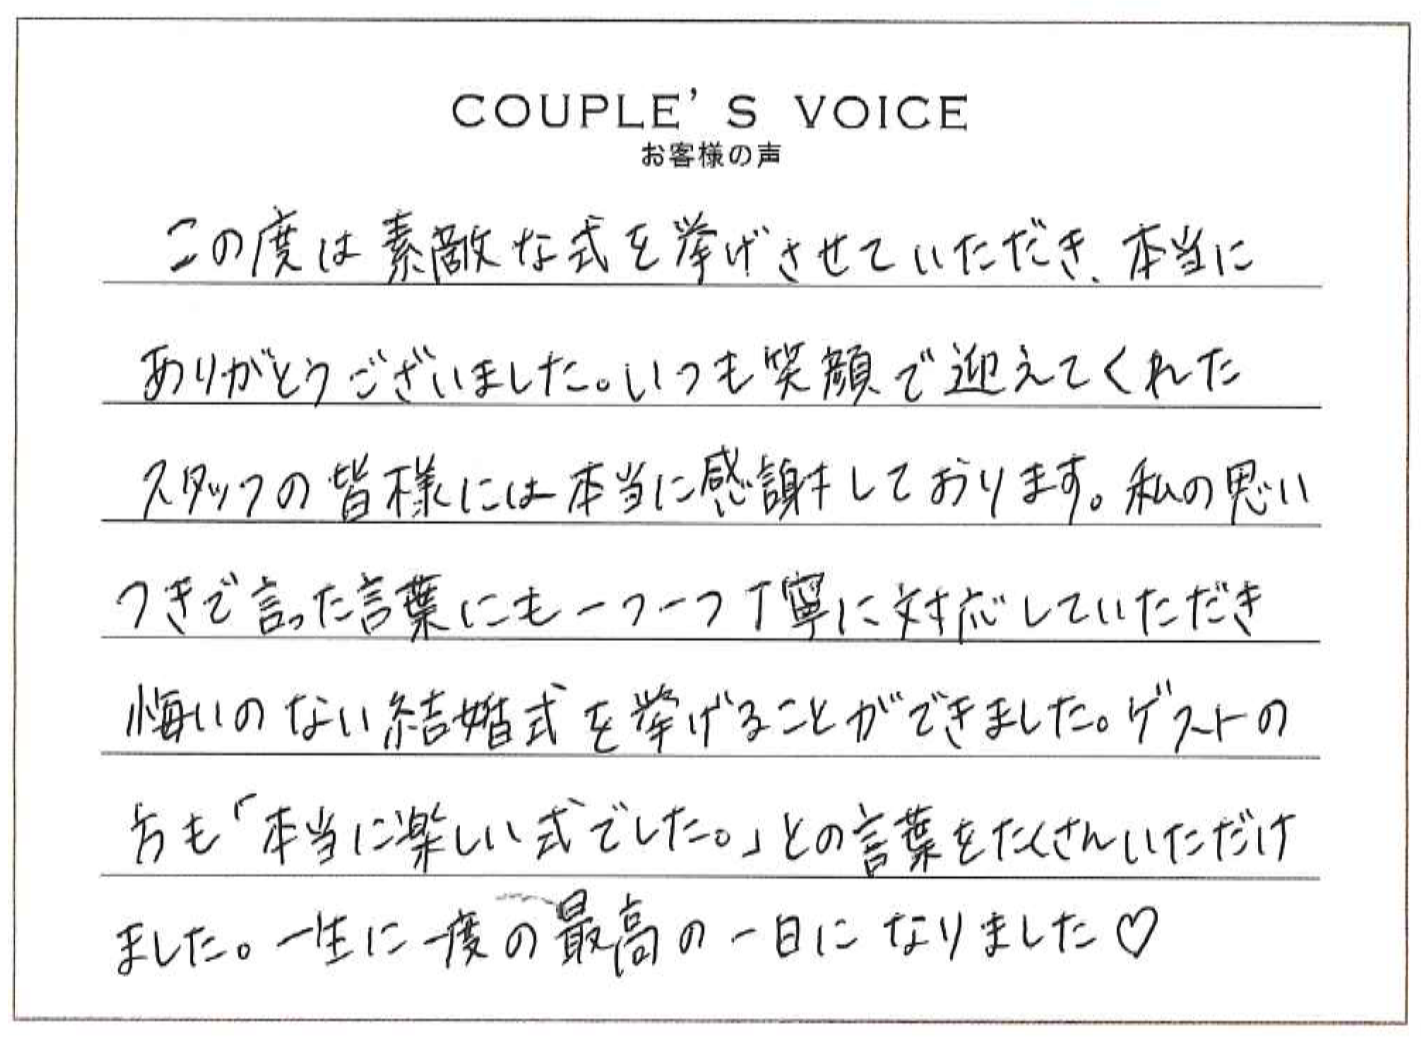 COUPLE'S VOICE
お客様の声
この度は素敵な式を挙げさせていただき、本当に
ありがとうございました。いつも笑顔で迎えてくれた
スタッフの皆様には本当に感謝しております。私の思い
つきで言った言葉にも一つ一つ丁寧に対応していただき
悔いのない結婚式を挙げることができました。ゲストの
方も「本当に楽しい式でした。」との言葉をたくさんいただけ
ました。一生に一度の最高の一日になりました♡